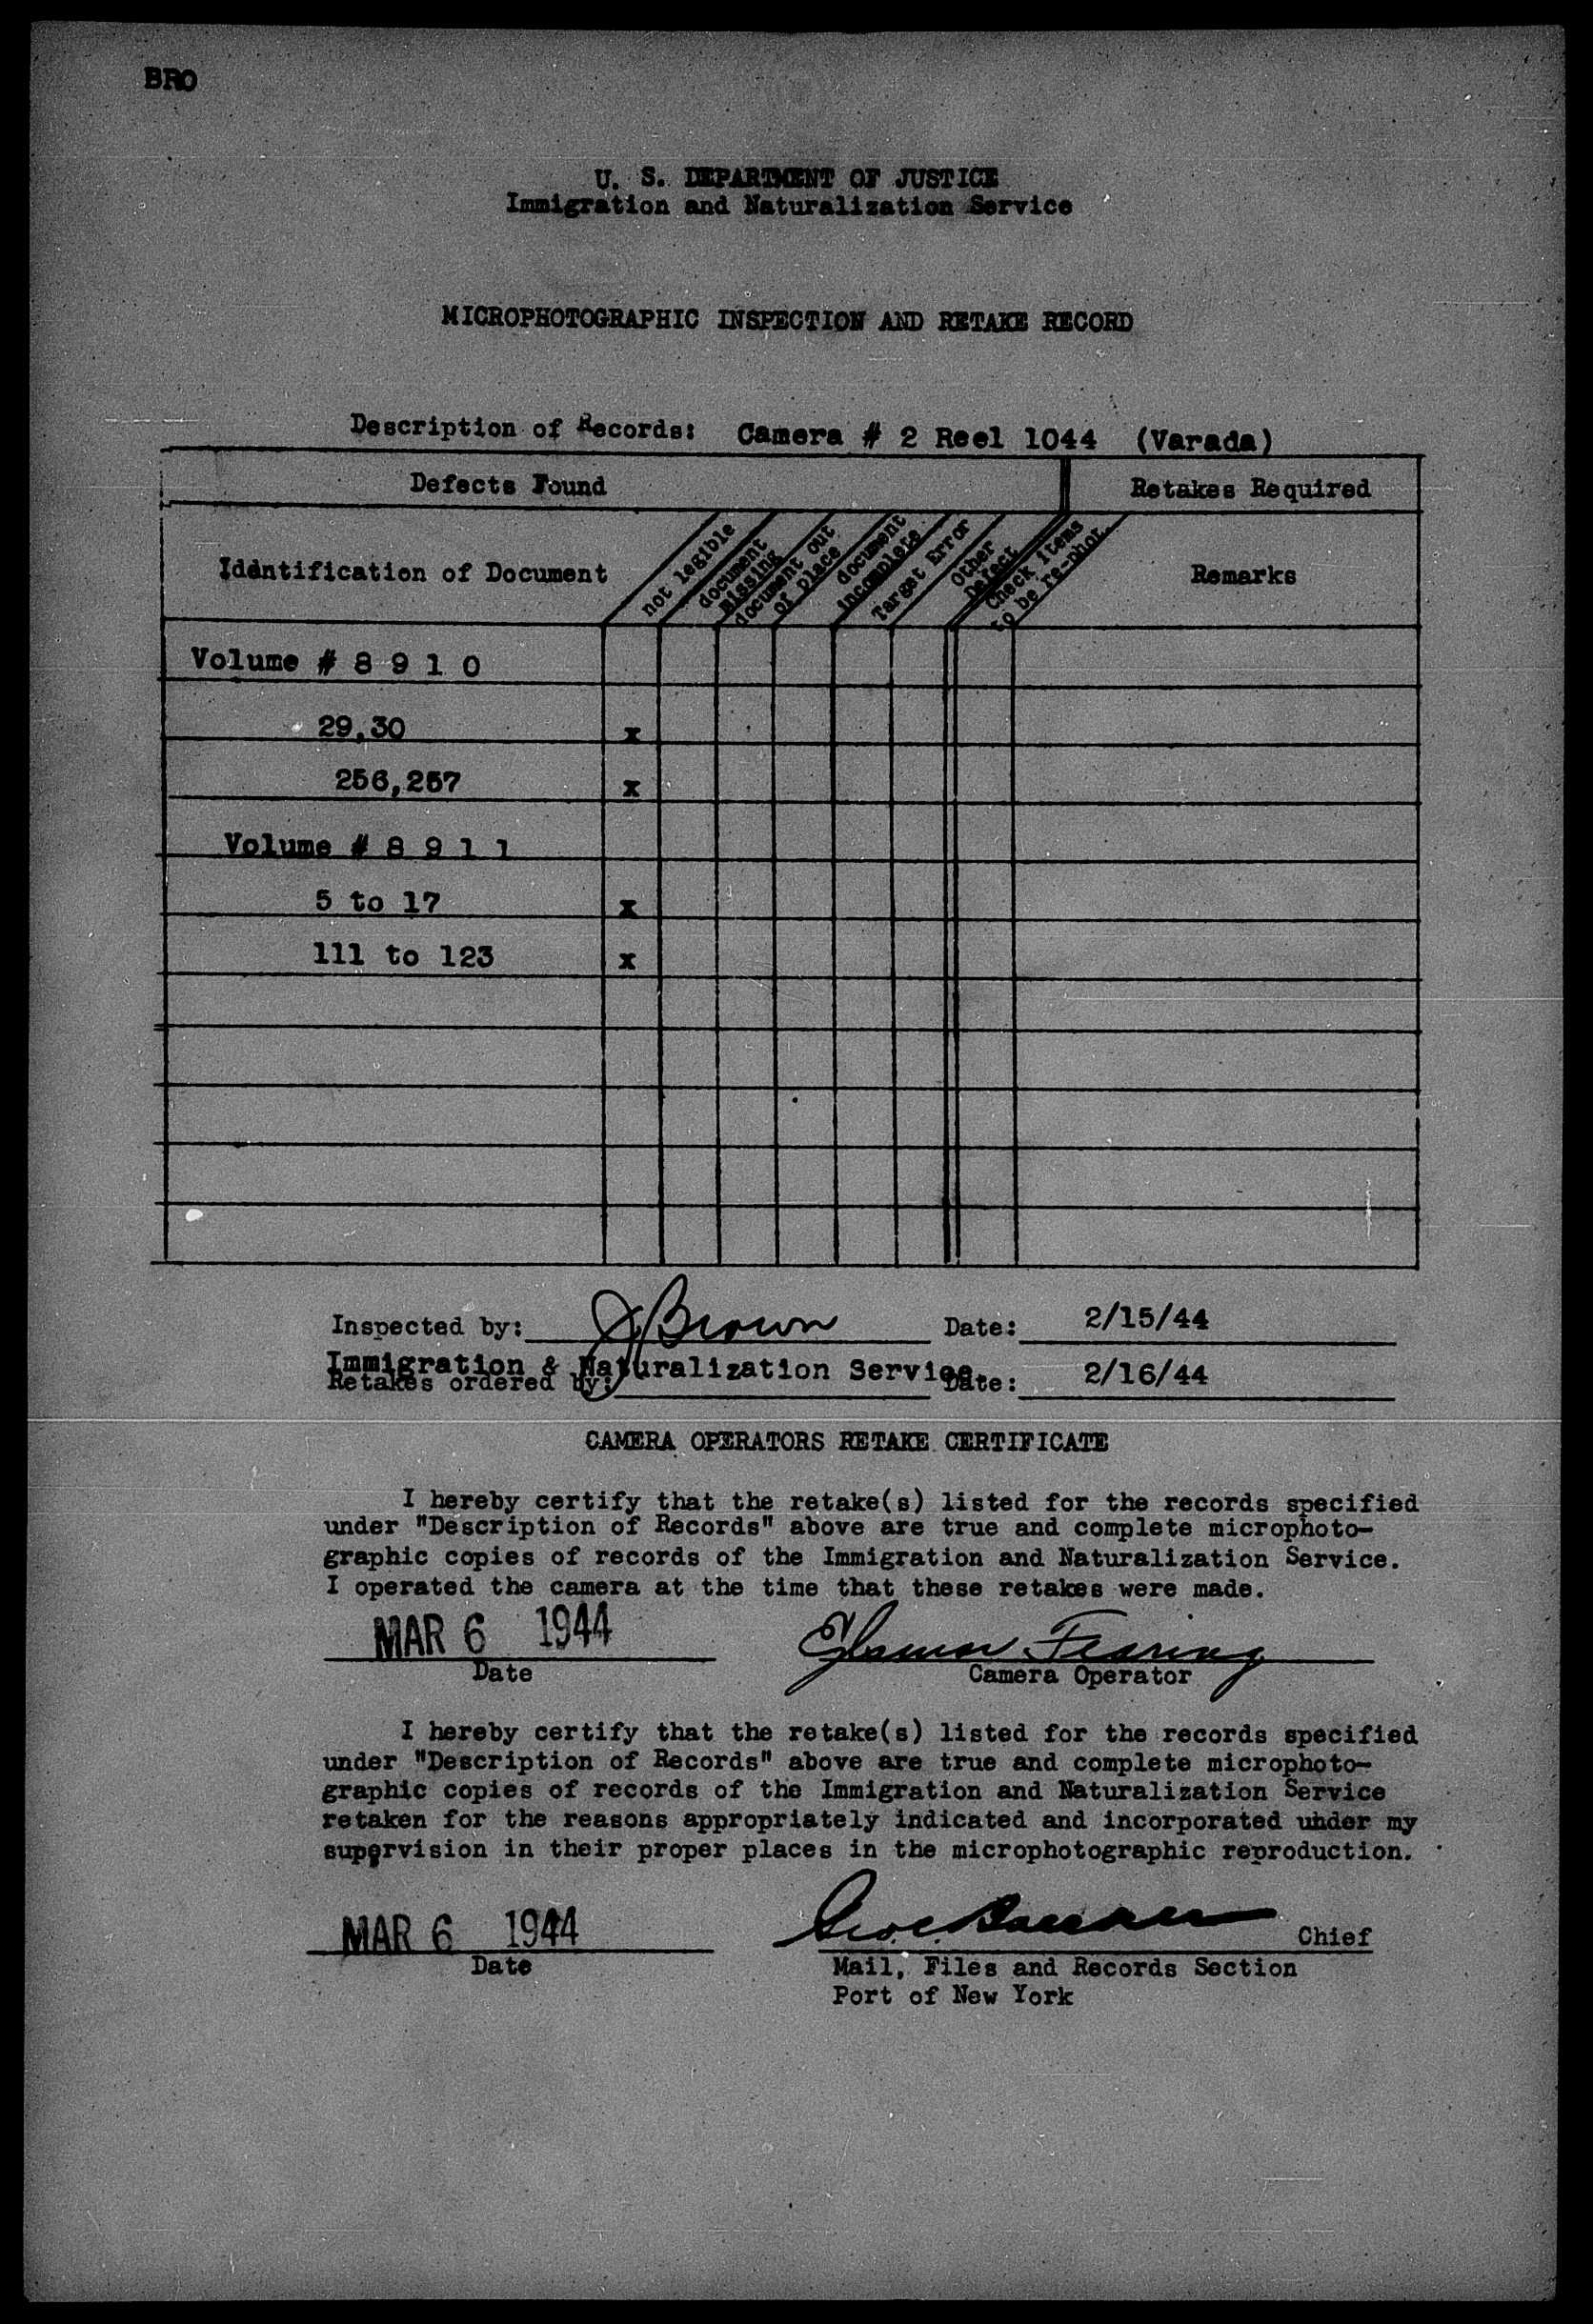 BRO
U. S. DEPARTMENT OF JUSTICE
Immigration and Naturalization Service
MICROPHOTOGRAPHIC INSPECTION AND RETAKE RECORD
Description of Records: Camera # 2 Reel 1044 (Varada)
Defects Found Retakes Required
Identification of Document
not legible
document
missing
document out
of place
document
incomplete
Target Error
Other
Defect
Check items
to be re-phot.
Remarks
Volume # 8 9 1 0
29,30 x
256,257 x
Volume # 8 9 1 1
5 to 17 x
111 to 123 x
Inspected by: J Brown Date: 2/15/44
Immigration & Naturalization Service.
Retakes ordered by: Date: 2/16/44
CAMERA OPERATORS RETAKE CERTIFICATE
I hereby certify that the retake(s) listed for the records specified
under "Description of Records" above are true and complete microphoto-
graphic copies of records of the Immigration and Naturalization Service.
I operated the camera at the time that these retakes were made.
MAR 6 1944
Date Camera Operator
I hereby certify that the retake(s) listed for the records specified
under "Description of Records" above are true and complete microphoto-
graphic copies of records of the Immigration and Naturalization Service
retaken for the reasons appropriately indicated and incorporated under my
supervision in their proper places in the microphotographic reproduction.
MAR 6 1944 Chief
Date Mail, Files and Records Section
Port of New York